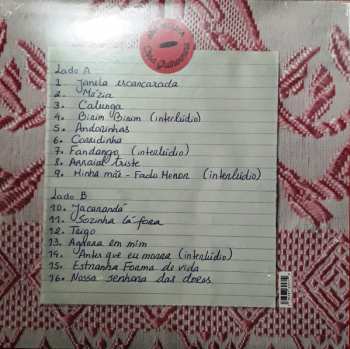 Lado A
1. Janela escancarada
2. Mázia
3. Calunga
4. Birim Birim (interlúdio)
5. Andorinhas
6. Corridinha
7. Fandango (interlúdio)
8. Arraial triste
9. Minha mãe - Fado Menor (interlúdio)
Lado B
10. Jacarandá
11. Sozinha lá fora
12. Trigo
13. Agora em mim
14. Antes que eu morra (interlúdio)
15. Estranha Forma de vida
16. Nossa senhora das dores